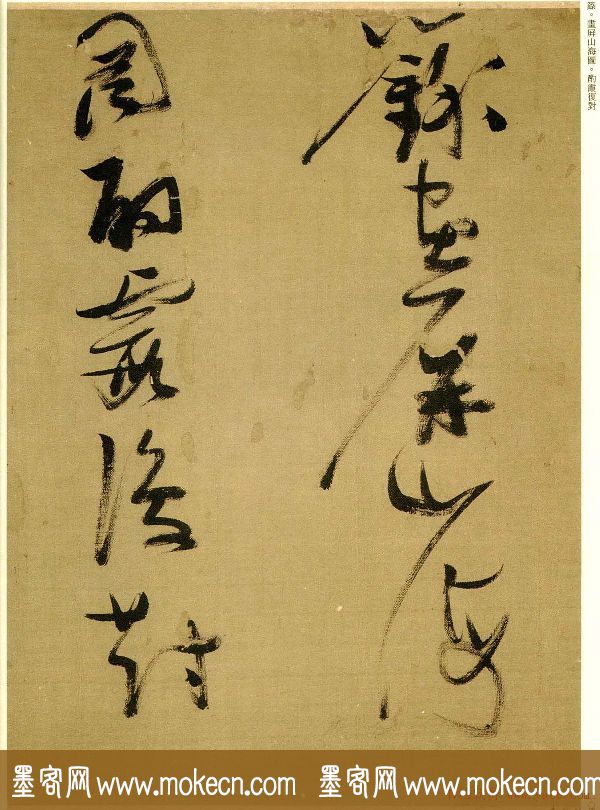 籙。畫屏山海圖。酌霞復對
籙畫屏山海
圖酌霞復對
墨客网 www.mokecn.com 墨客网 www.mokecn.com